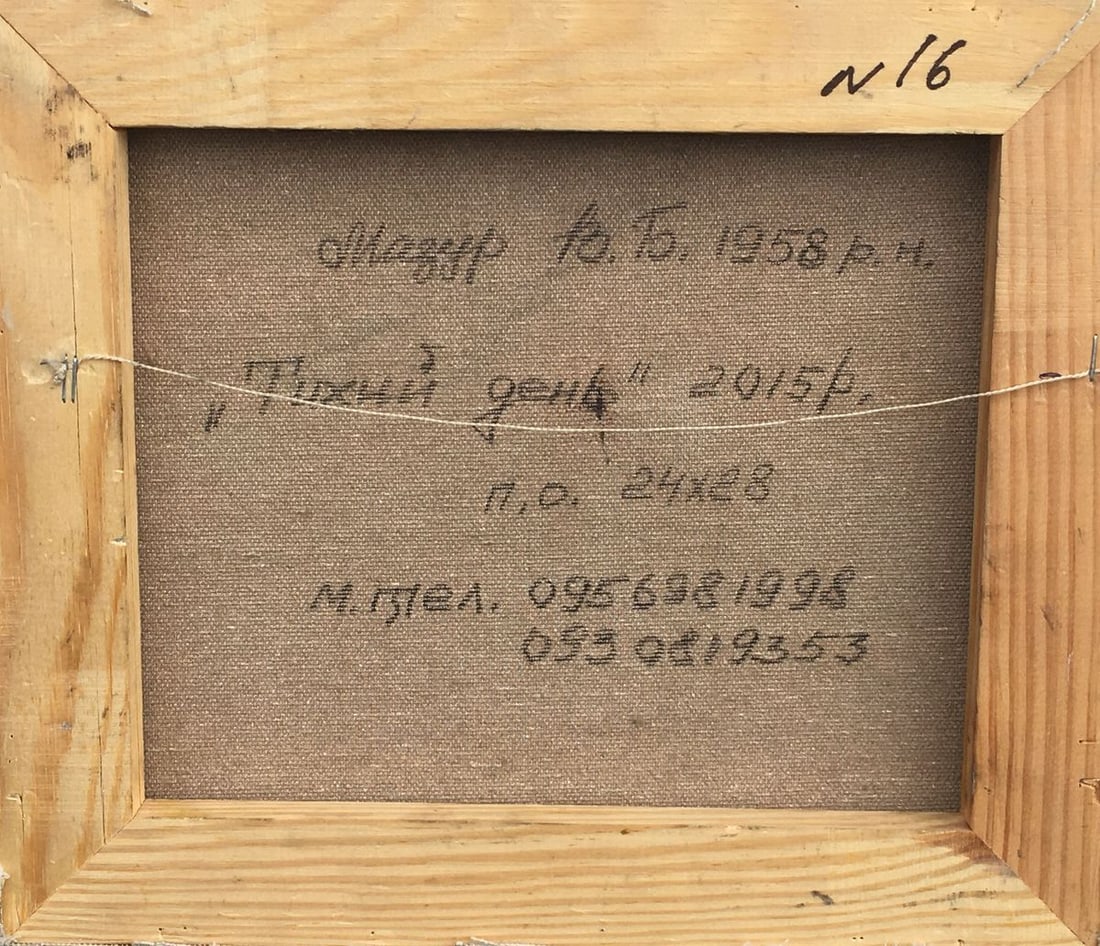 N 16
Мазур Ю.Б. 1958 р.н.
„Тихий день" 2015р.
п.о. 24х28
м.тел. 0956981998
093 0819353